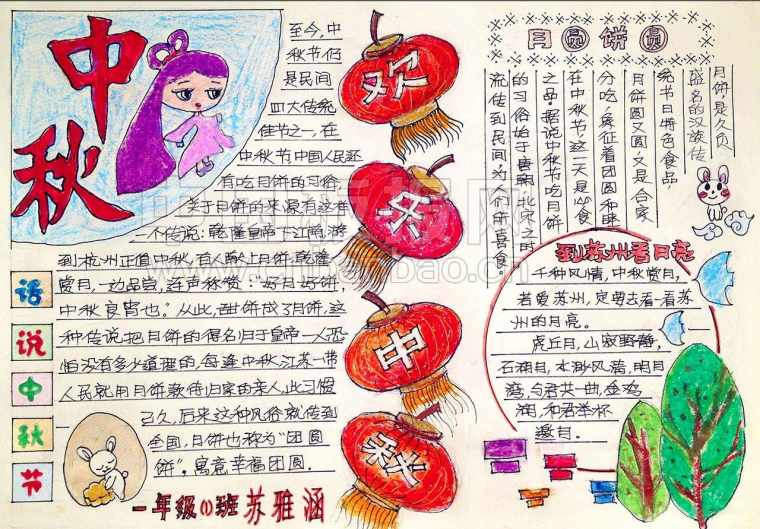 中
秋
至今,中
秋节仍
是民间
四大传统
佳节之一,在
中秋节中国人民还
有吃月饼的习俗
关于月饼的来源有这样
一个传说:乾隆皇帝下江南,游
到杭州正值中秋,有人献上月饼,乾隆
赏月,一边品尝,连声称赞:“好月好饼,
中秋良宵也。”从此,甜饼成了月饼,这
种传说把月饼的得名归于皇帝一人恐
怕没有多少道理的,每逢中秋,江苏一带
人民就用月饼款待归家的亲人,此习惯
已久,后来这种风俗就传到
全国,月饼也称为“团圆
饼”。寓意幸福团圆.
话
说
中
秋
节
一年级(1)班 苏雅涵
欢
乐
中
秋
月圆饼圆
月饼是久负
盛名的汉族传
统节日特色食品
月饼圆又圆,又是合家
分吃,象征着团圆和睦
在中秋节这一天是必食
之品.据说中秋节吃月饼
的习俗始于唐朝.北宋之时
流传到民间,为人们所喜食。
到苏州看月亮
千种风情,中秋赏月,
若爱苏州,定要去看一看苏
州的月亮。
虎丘月,山寂野静,
石湖月,水渺风清,明月
湾,与君共一曲,金鸡
湖,和君举杯
邀月.